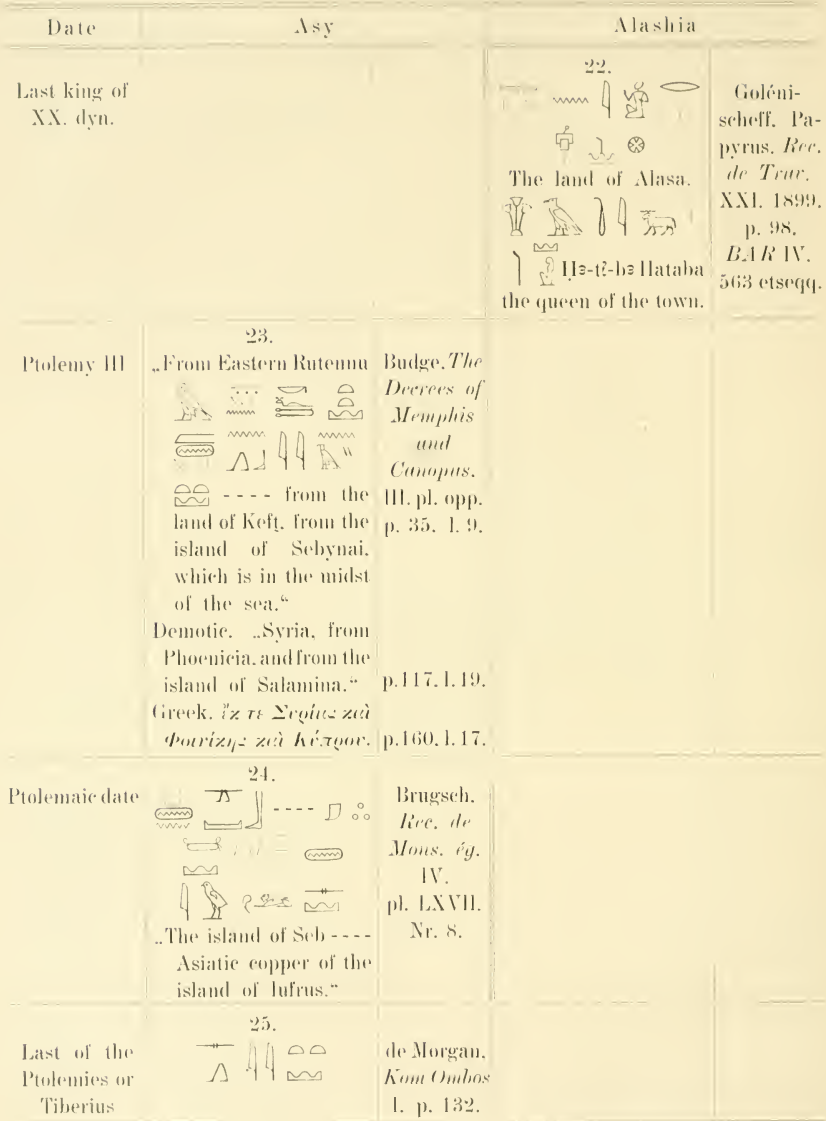 Date Asy Alashia
Last king of
XX. dyn.
22.
The land of Alasa.
Ḥꜣ-t?-bꜣ Hataba
the queen of the town.
Goléni-
scheff. Pa-
pyrus. Rec.
de Trav.
XXI. 1899.
p. 98.
BAR IV.
563 etseqq.
Ptolemy III
23.
„From Eastern Rutennu
- - - - from the
land of Keft, from the
island of Sebynai,
which is in the midst
of the sea.“
Demotic. „Syria, from
Phoenicia, and from the
island of Salamina.“
Greek. ἔκ τε Συρίας καὶ
Φοινίκης καὶ Κύπρου.
Budge. The
Decrees of
Memphis
and
Canopus.
III. pl. opp.
p. 35. l. 9.
p. 117. l. 19.
p. 160. l. 17.
Ptolemaic date
24.
- - - -
„The island of Seb - - - -
Asiatic copper of the
island of Iufrus.“
Brugsch.
Rec. de
Mons. ég.
IV.
pl. LXVII.
Nr. 8.
Last of the
Ptolemies or
Tiberius
25.
de Morgan.
Kom Ombos
I. p. 132.